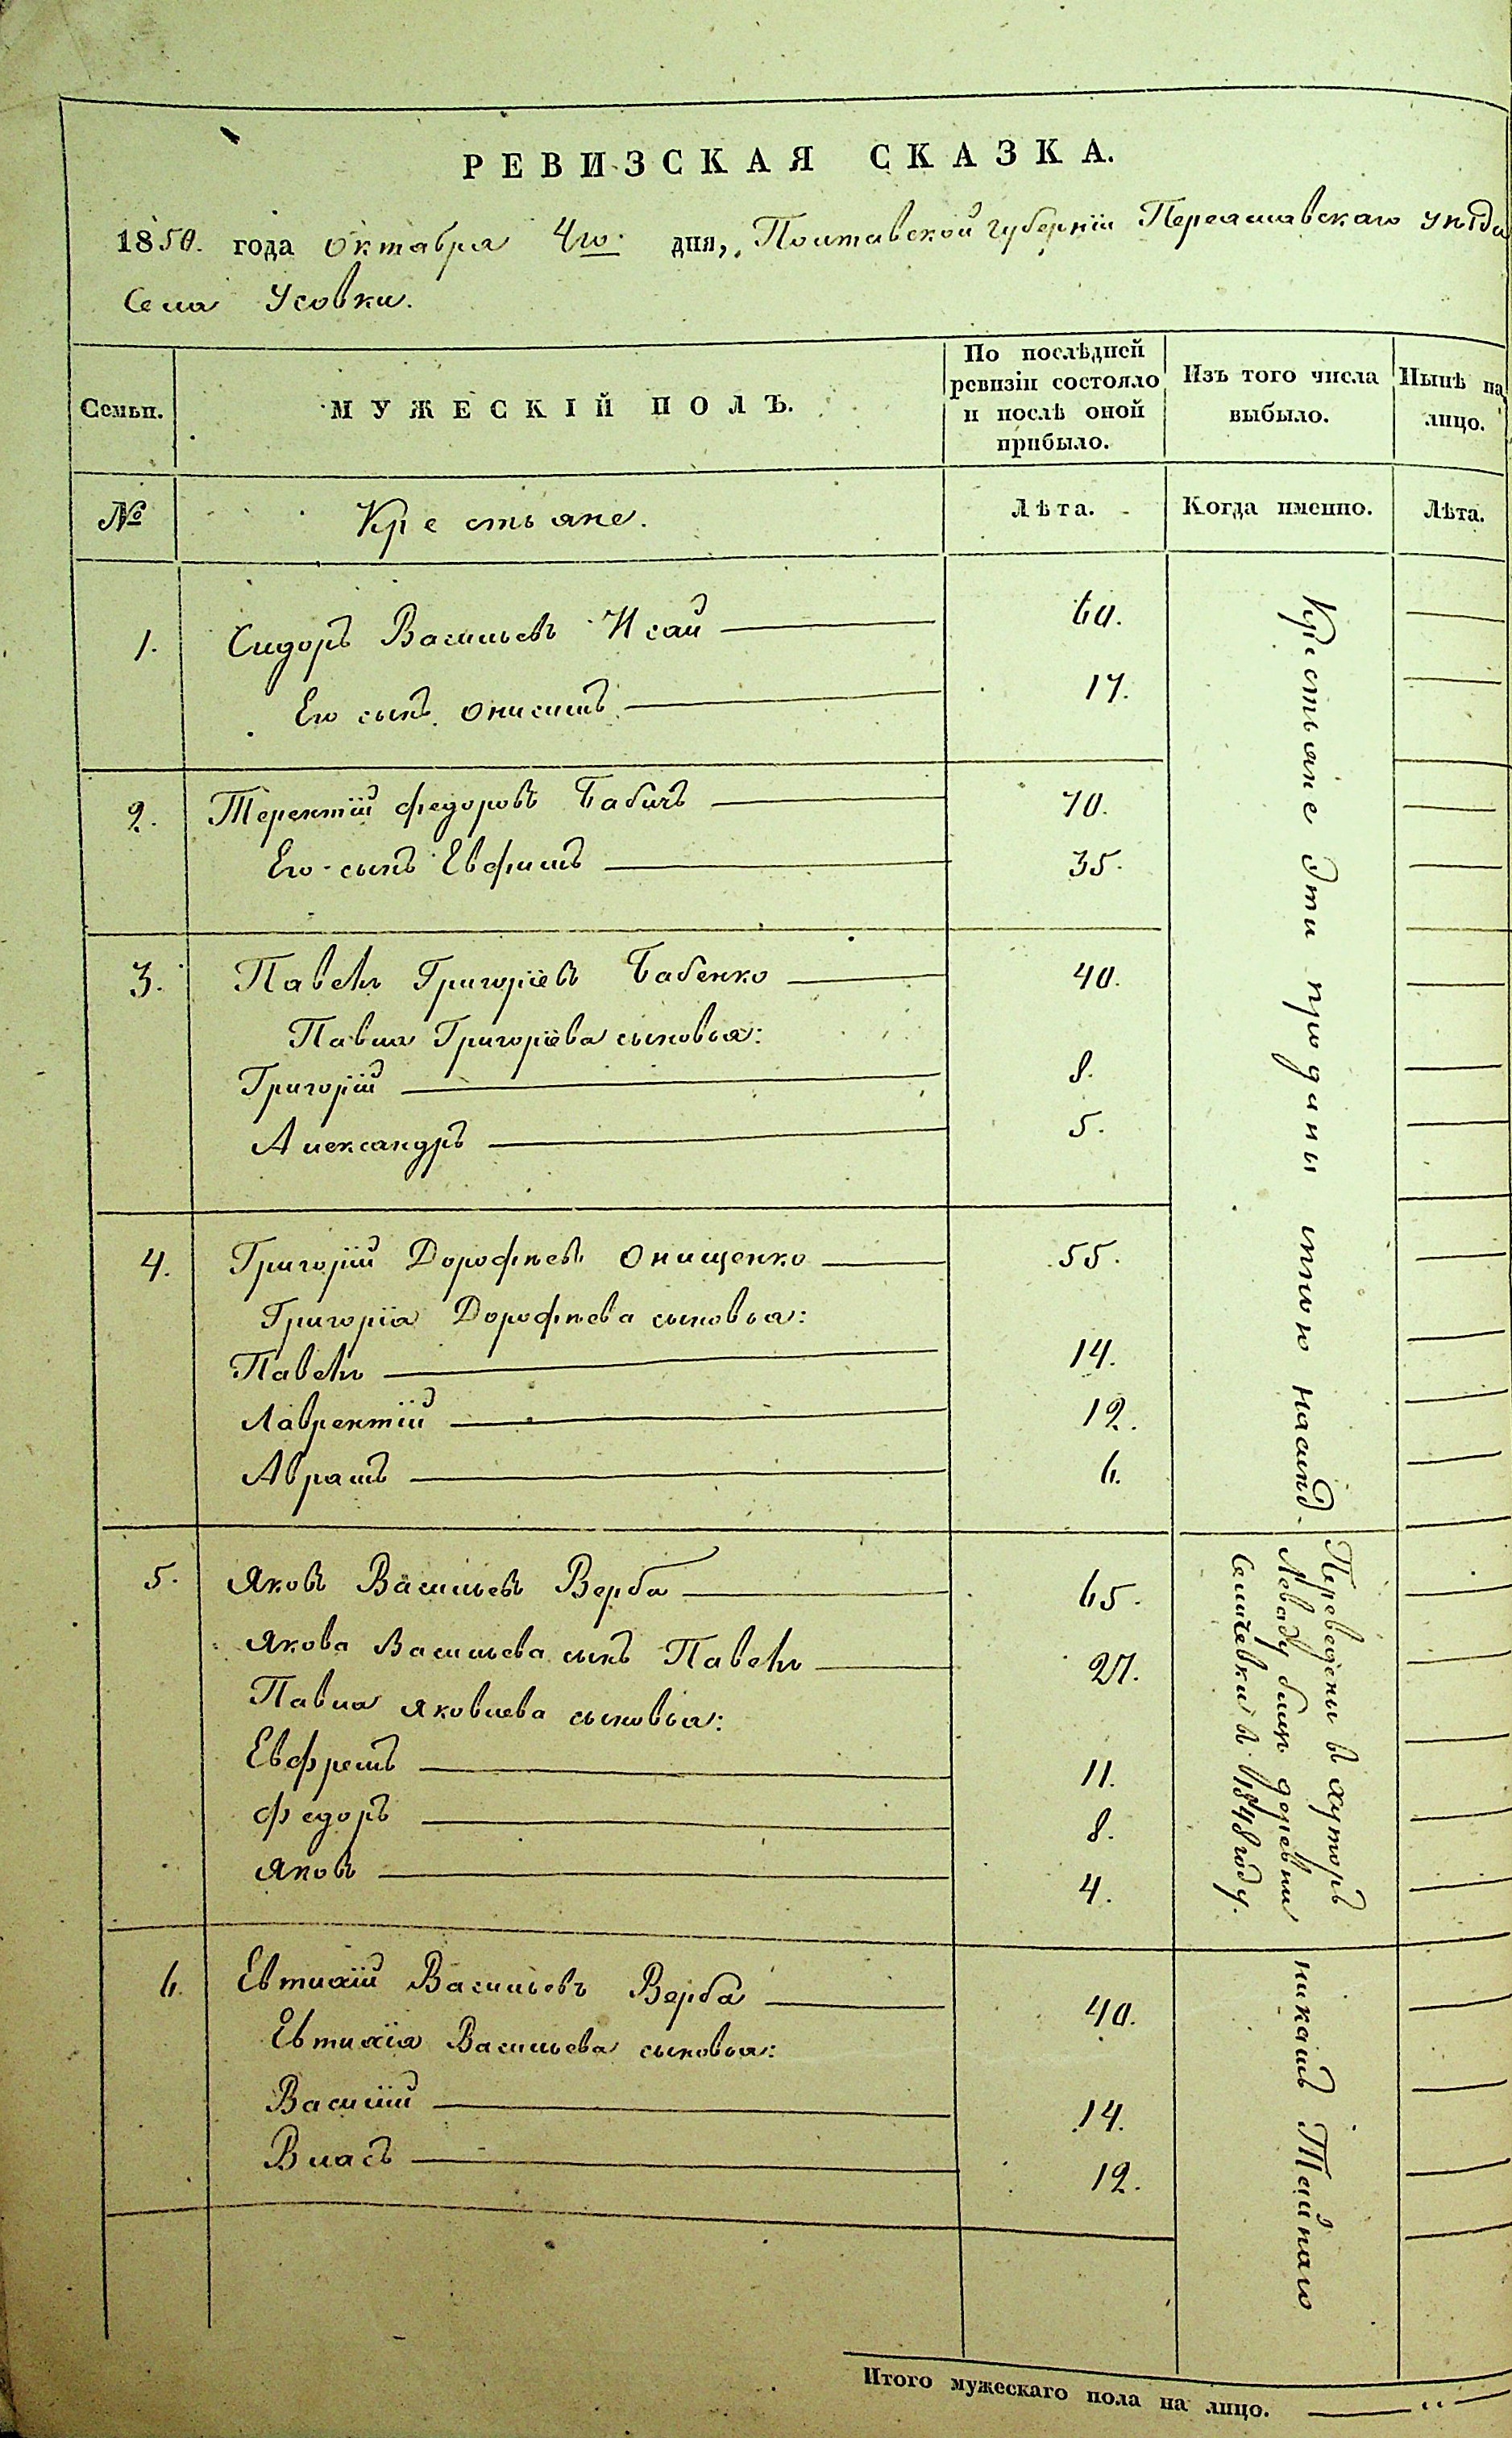 РЕВИЗСКАЯ СКАЗКА.
1850. года Октября 4го. дня, Полтавской губерніи Переяславскаго уѣзда
Села Усовки.
Семьи.
МУЖЕСКІЙ ПОЛЪ.
По послѣдней
ревизіи состояло
и послѣ оной
прибыло.
Изъ того числа
выбыло.
Нынѣ на
лицо.
№
Крестьяне.
Лѣта.
Когда именно.
Лѣта.
1. Сидоръ Васильевъ Исай 60.
Его сынъ Онисимъ 17.
2. Терентій Федоровъ Бабичъ 70.
Его сынъ Евфимъ 35.
3. Павелъ Григоріевъ Бабенко 40.
Павла Григоріева сыновья:
Григорій 8.
Александръ 5.
4. Григорій Дорофѣевъ Онищенко 55.
Григорія Дорофѣева сыновья:
Павелъ 14.
Лаврентій 12.
Аврамъ 6.
5. Яковъ Васильевъ Верба 65.
Якова Васильева сынъ Павелъ 27.
Павла Яковлева сыновья:
Евфремъ 11.
Федоръ 8.
Яковъ 4.
6. Евтихій Васильевъ Верба 40.
Евтихія Васильева сыновья:
Василій 14.
Власъ 12.
Крестьяне эти проданы мною наслѣд-
Переведены в хуторъ
Леваду близ деревни
в 1848 году.
никамъ Тайнаго
Итого мужескаго пола на лицо.